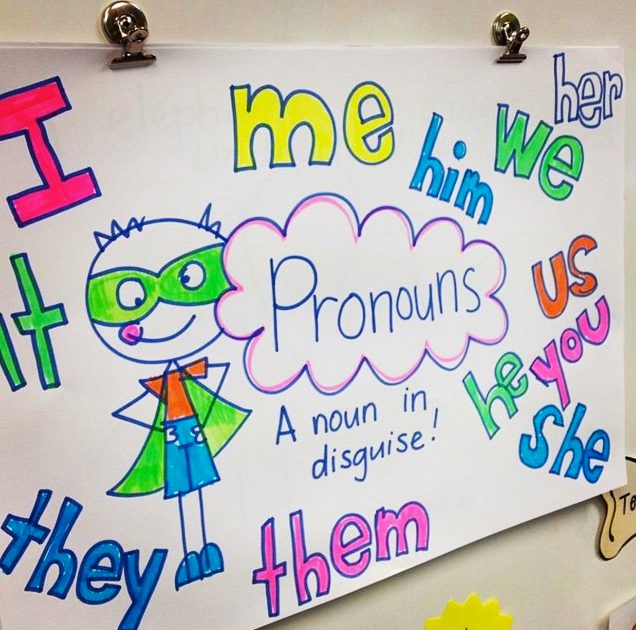 her
I
me
him
we
Pronouns
It
us
you
he
she
A noun in
disguise!
they
them